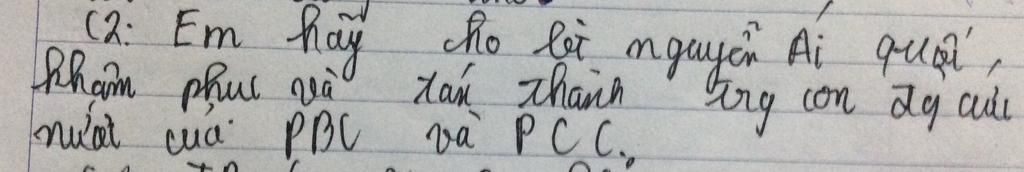 C2: Em hãy cho lời nguyễn Ái quốc,
khâm phục và tán thành trg con đg cứu
nước của PBC và PCC.